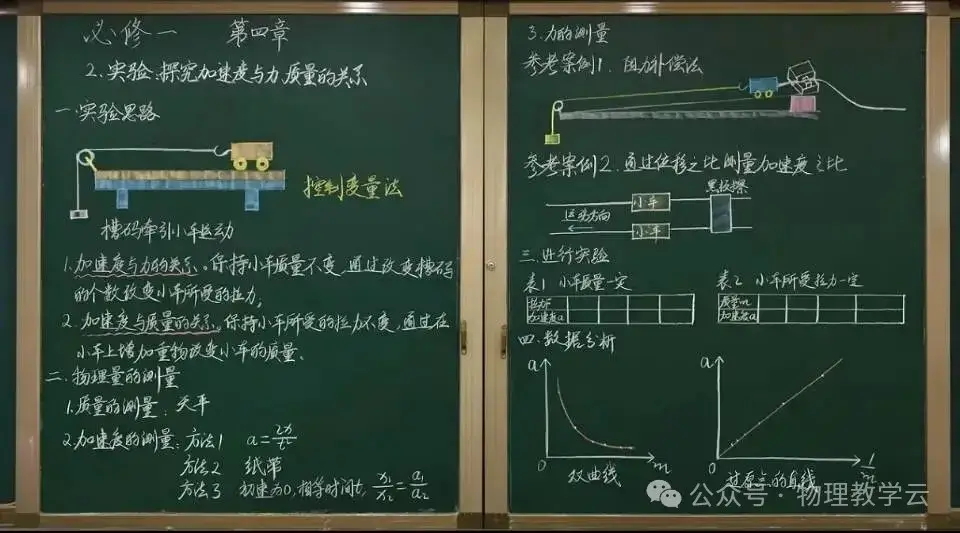 必修一 第四章
2.实验:探究加速度与力、质量的关系
一.实验思路
控制变量法
槽码牵引小车运动
1.加速度与力的关系。保持小车质量不变,通过改变槽码
的个数改变小车所受的拉力。
2.加速度与质量的关系。保持小车所受的拉力不变,通过在
小车上增加重物改变小车的质量。
二.物理量的测量
1.质量的测量:天平
2.加速度的测量:方法1 a=2x/t²
方法2 纸带
方法3 初速为0,相等时间t, x₁/x₂=a₁/a₂
3.力的测量
参考案例1.阻力补偿法
参考案例2.通过位移之比测量加速度之比
黑板擦
小车
运动方向
小车
三.进行实验
表1 小车质量一定
拉力F
加速度a
表2 小车所受拉力一定
质量m
加速度a
四.数据分析
a
0
m
双曲线
a
0
1/m
过原点的直线
公众号·物理教学云